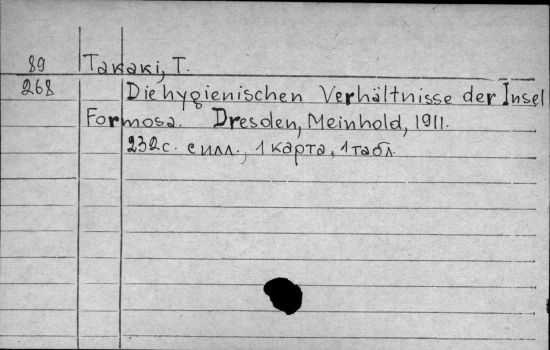 89 Takaki, T.
268 Die hygienischen Verhältnisse der Insel
Formosa. Dresden, Meinhold, 1911.
232 с. с илл., 1 карта, 1 табл.